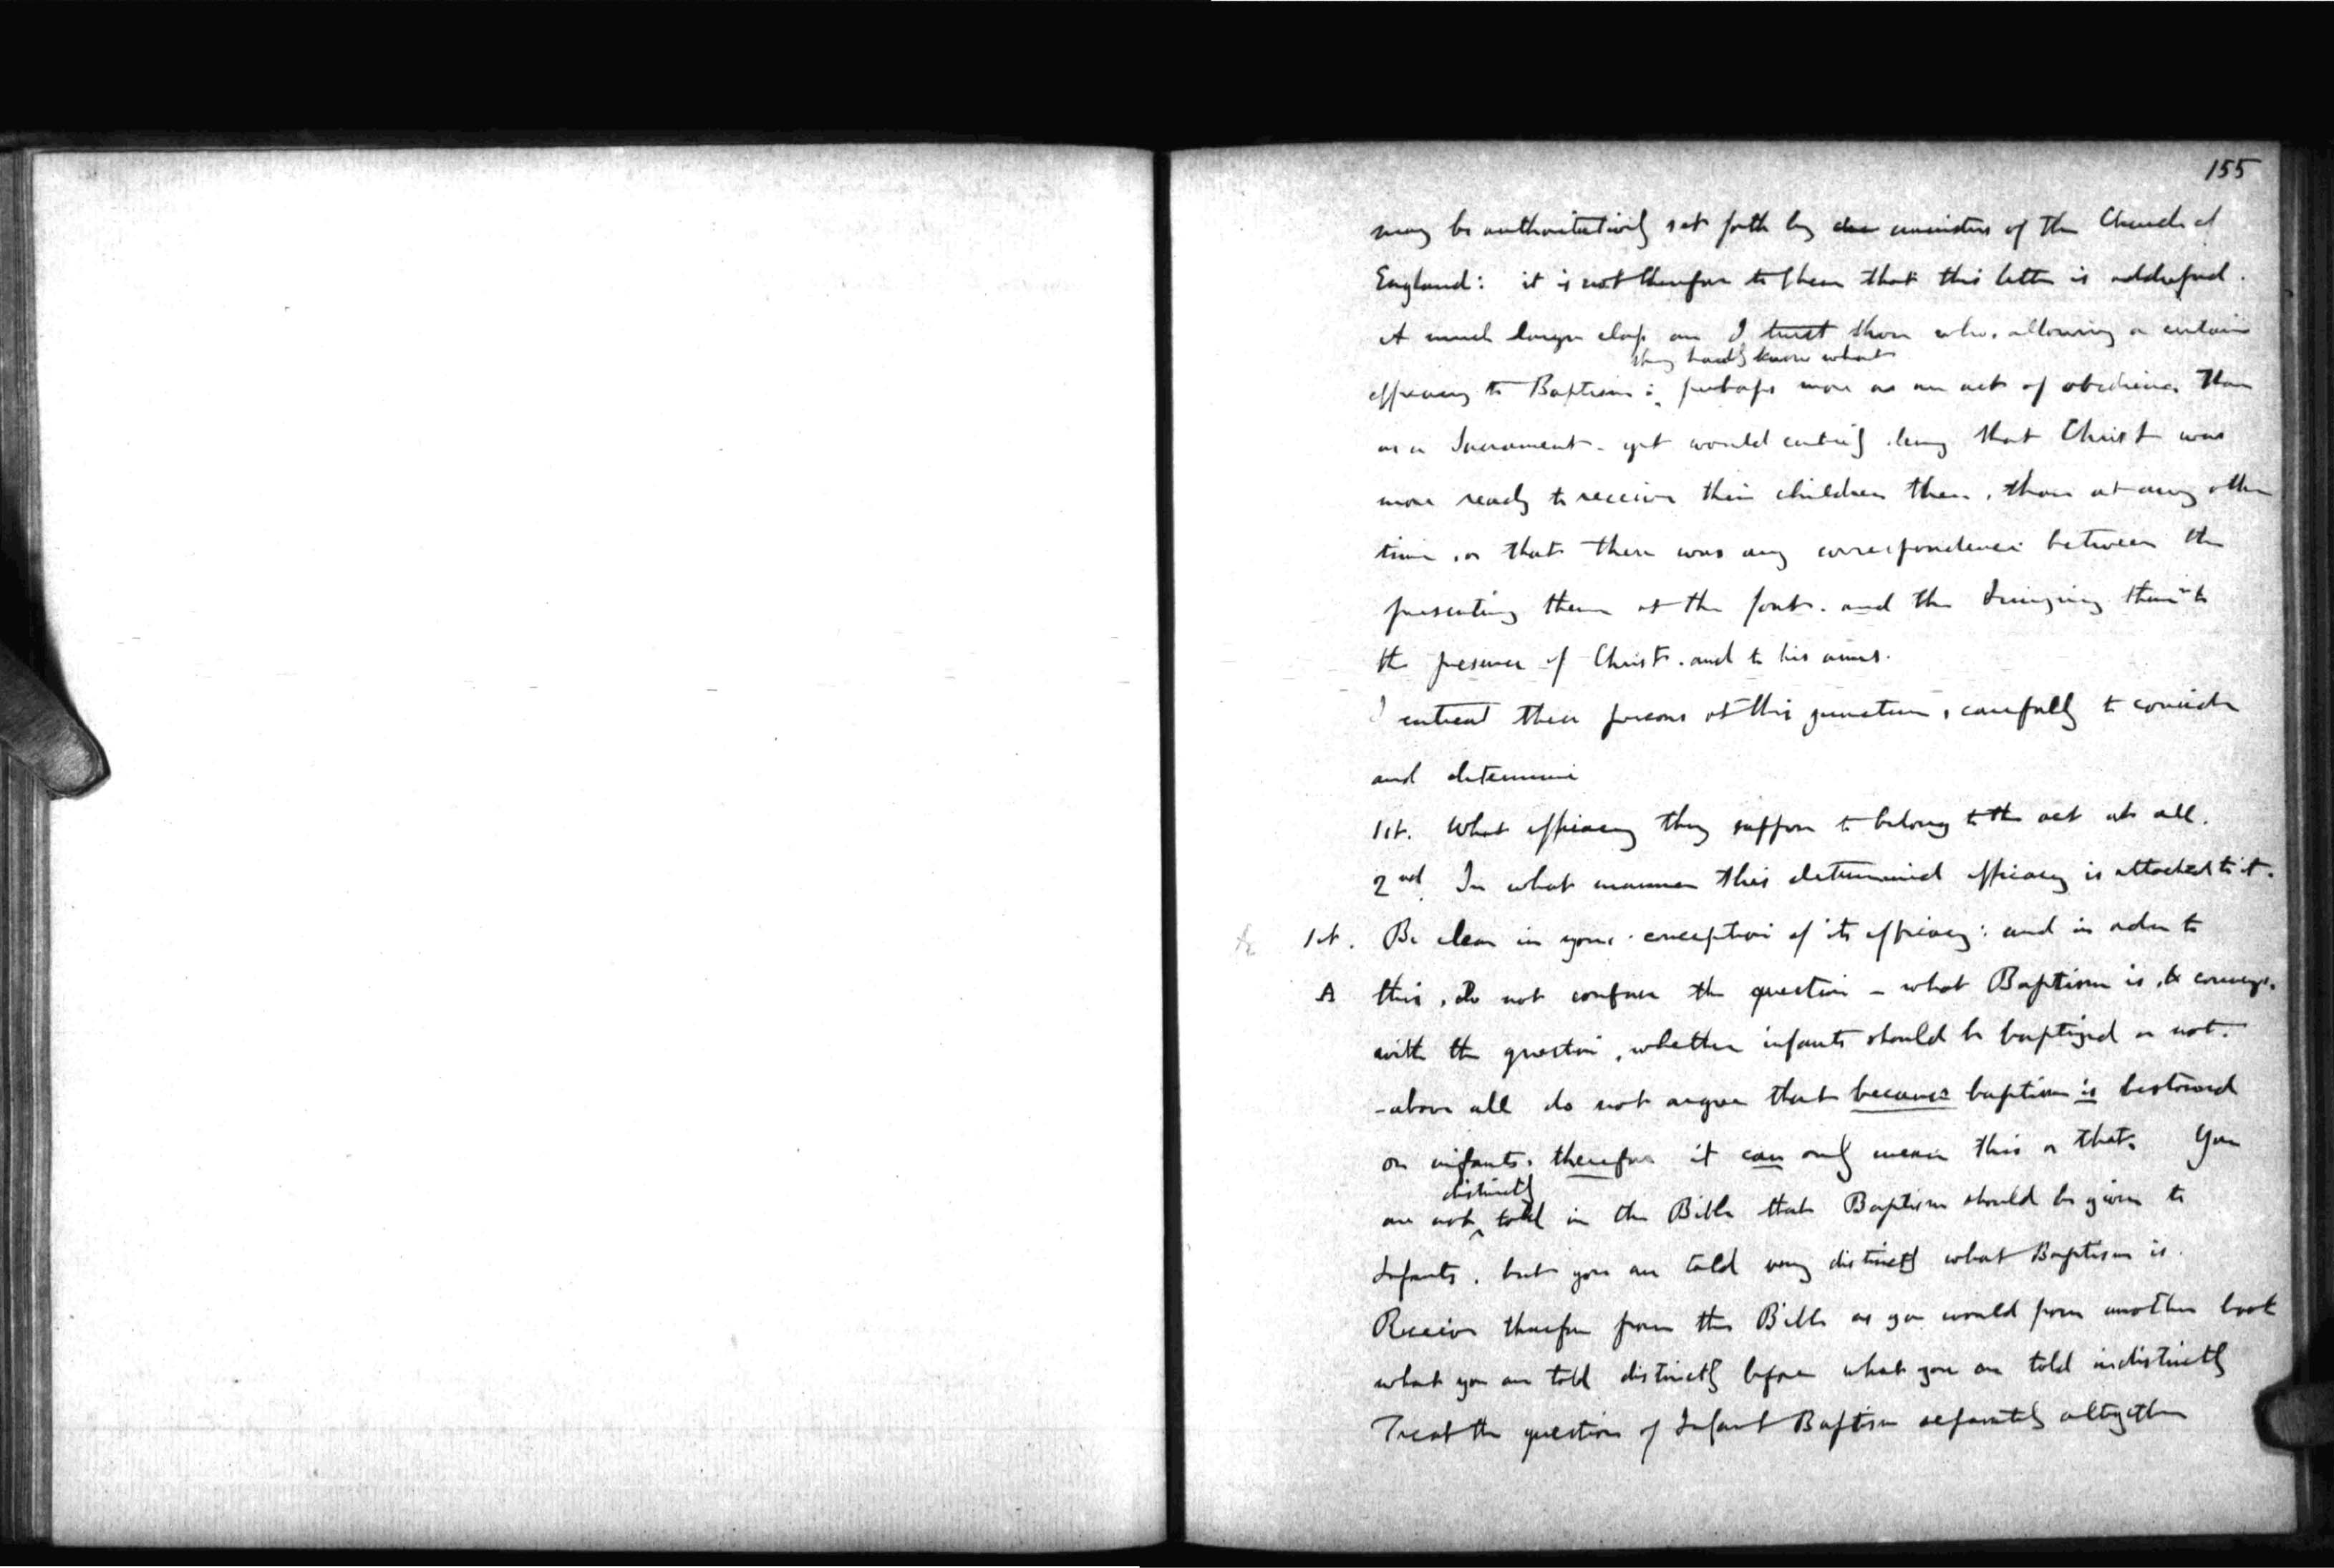 155
may be authoritatively set forth by ministers of the Church of
England: it is not therefore to them that this letter is addressed.
A much larger class are I trust those who, allowing a certain
they hardly know what
efficacy to Baptism: perhaps more as an act of obedience than
as a Sacrament - yet would entirely deny that Christ was
more ready to receive their children then, than at any other
time, or that there was any correspondence between the
presenting them at the font. and the bringing them to
the presence of Christ. and to his arms.
I entreat these persons at this juncture, carefully to consider
and determine
1st. What efficacy they suppose to belong to the act at all.
2nd. In what manner this determined efficacy is attached to it.
1st. Be clear in your conception of its efficacy: and in order to
A this, do not confuse the question - what Baptism is, & conveys.
with the question, whether infants should be baptized or not.
- above all do not argue that because baptism is bestowed
on infants. therefore it can only mean this or that. You
distinctly
are not told in the Bible that Baptism should be given to
Infants. but you are told very distinctly what Baptism is.
Receive therefore from the Bible as you would from another book
what you are told distinctly before what you are told indistinctly
Treat the question of Infant Baptism separately altogether